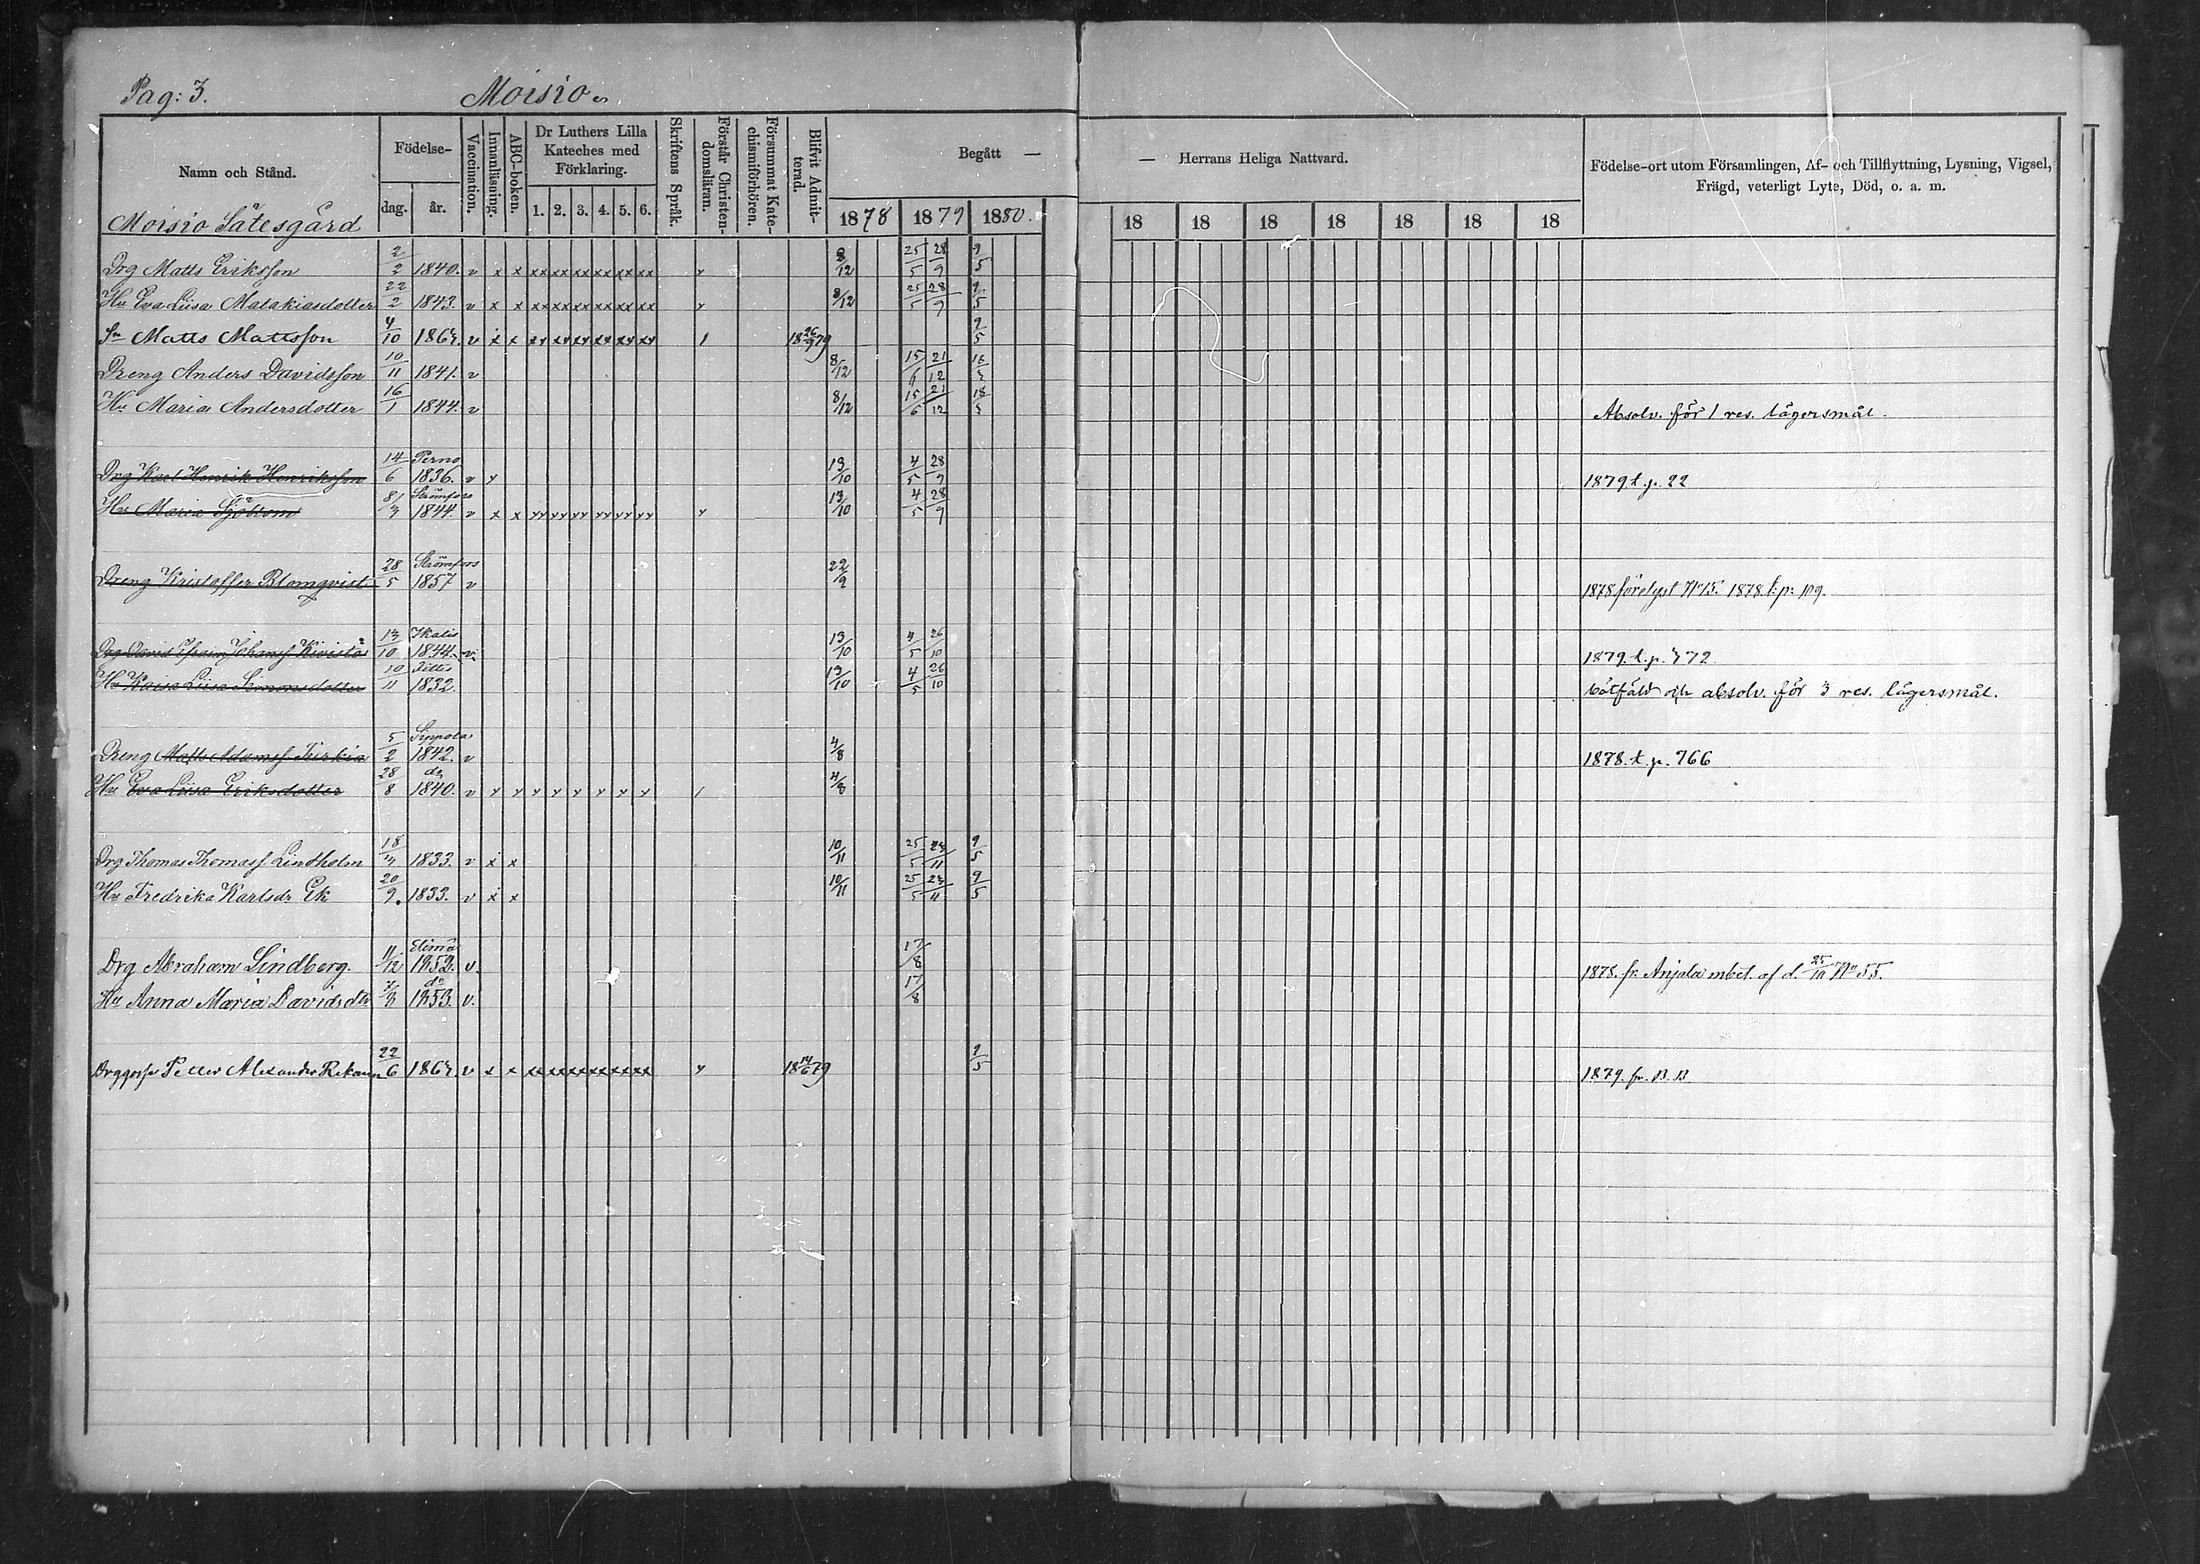 Pag: 3. Moisio
Namn och Stånd. Födelse- dag. år. Vaccination. Innanläsning. ABC-boken. Dr Luthers Lilla Kateches med Förklaring. 1. 2. 3. 4. 5. 6. Skriftens Språk. Förstår Christendomsläran. Försummat Katechismiförhören. Blifvit Admitterad. Begått — 1878 1879 1880.
— Herrans Heliga Nattvard. 18 18 18 18 18 18 18
Födelse-ort utom Församlingen, Af- och Tillflyttning, Lysning, Vigsel, Frägd, veterligt Lyte, Död, o. a. m.
Moisio Sätesgård
Drg Matts Eriksson 2/2 1840. v x x xx xx xx xx xx xx 8/12 25/5 28/9 9/5
Hu Eva Liisa Malakiasdotter 22/2 1843. v x x xx xx xx xx xx xx 8/12 25/5 28/9 9/5
Sn Matts Mattsson 4/10 1864. v x x xx xx xx xx xx xx 1 18 26/9 79 9/5
Dreng Anders Davidsson 10/11 1841. v 8/12 15/6 21/12
Hu Maria Andersdotter 16/1 1844. v 8/12 15/6 21/12 Absolv. för 1 res. lägersmål.
Drg Karl Henrik Henriksson 14/6 Perno 1836. v 13/10 4/5 28/9 1879 t. p. 22
Hu Maria Sjöblom 8/3 Strömfors 1844. v x x 13/10 4/5 28/9
Dreng Kristoffer Blomqvist 28/5 Strömfors 1857 v 22/9 1878 förelyst No 15. 1878 t. p: 109.
Drg David Efraim Johanss Kivistö 13/10 Ikalis 1844. v. 13/10 4/5 26/10 1879. t. p. 772
Hu Kaisa Liisa Simonsdotter 10/11 1832. 13/10 4/5 26/10 bötfäld och absolv. för 3 res. lägersmål.
Dreng Matts Adamss 5/2 Sippola 1842. v 4/8 1878. t. p. 766
Hu Eva Liisa Eriksdotter 28/8 do 1840. v 4/8
Drg Thomas Thomass Lindholm 18/3 1833. v x x 10/11 25/5 23/11 9/5
Hu Fredrika Karlsdr Ek 20/9. 1833. v x x 10/11 25/5 23/11 9/5
Drg Abraham Lindberg. 11/12 Elimä 1852. v. 17/8 1878. fr. Anjala mbet. af d. 25/10 No 55.
Hu Anna Maria Davidsdtr do 1853. v. 17/8
Drggosse Petter Alexander 22/6 1864. v x x xx xx xx xx xx xx 18 14/6 79 9/5 1879. fr. B. B